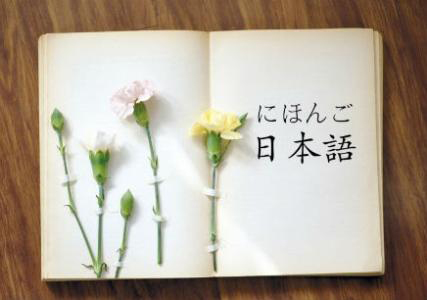 にほんご
日本語